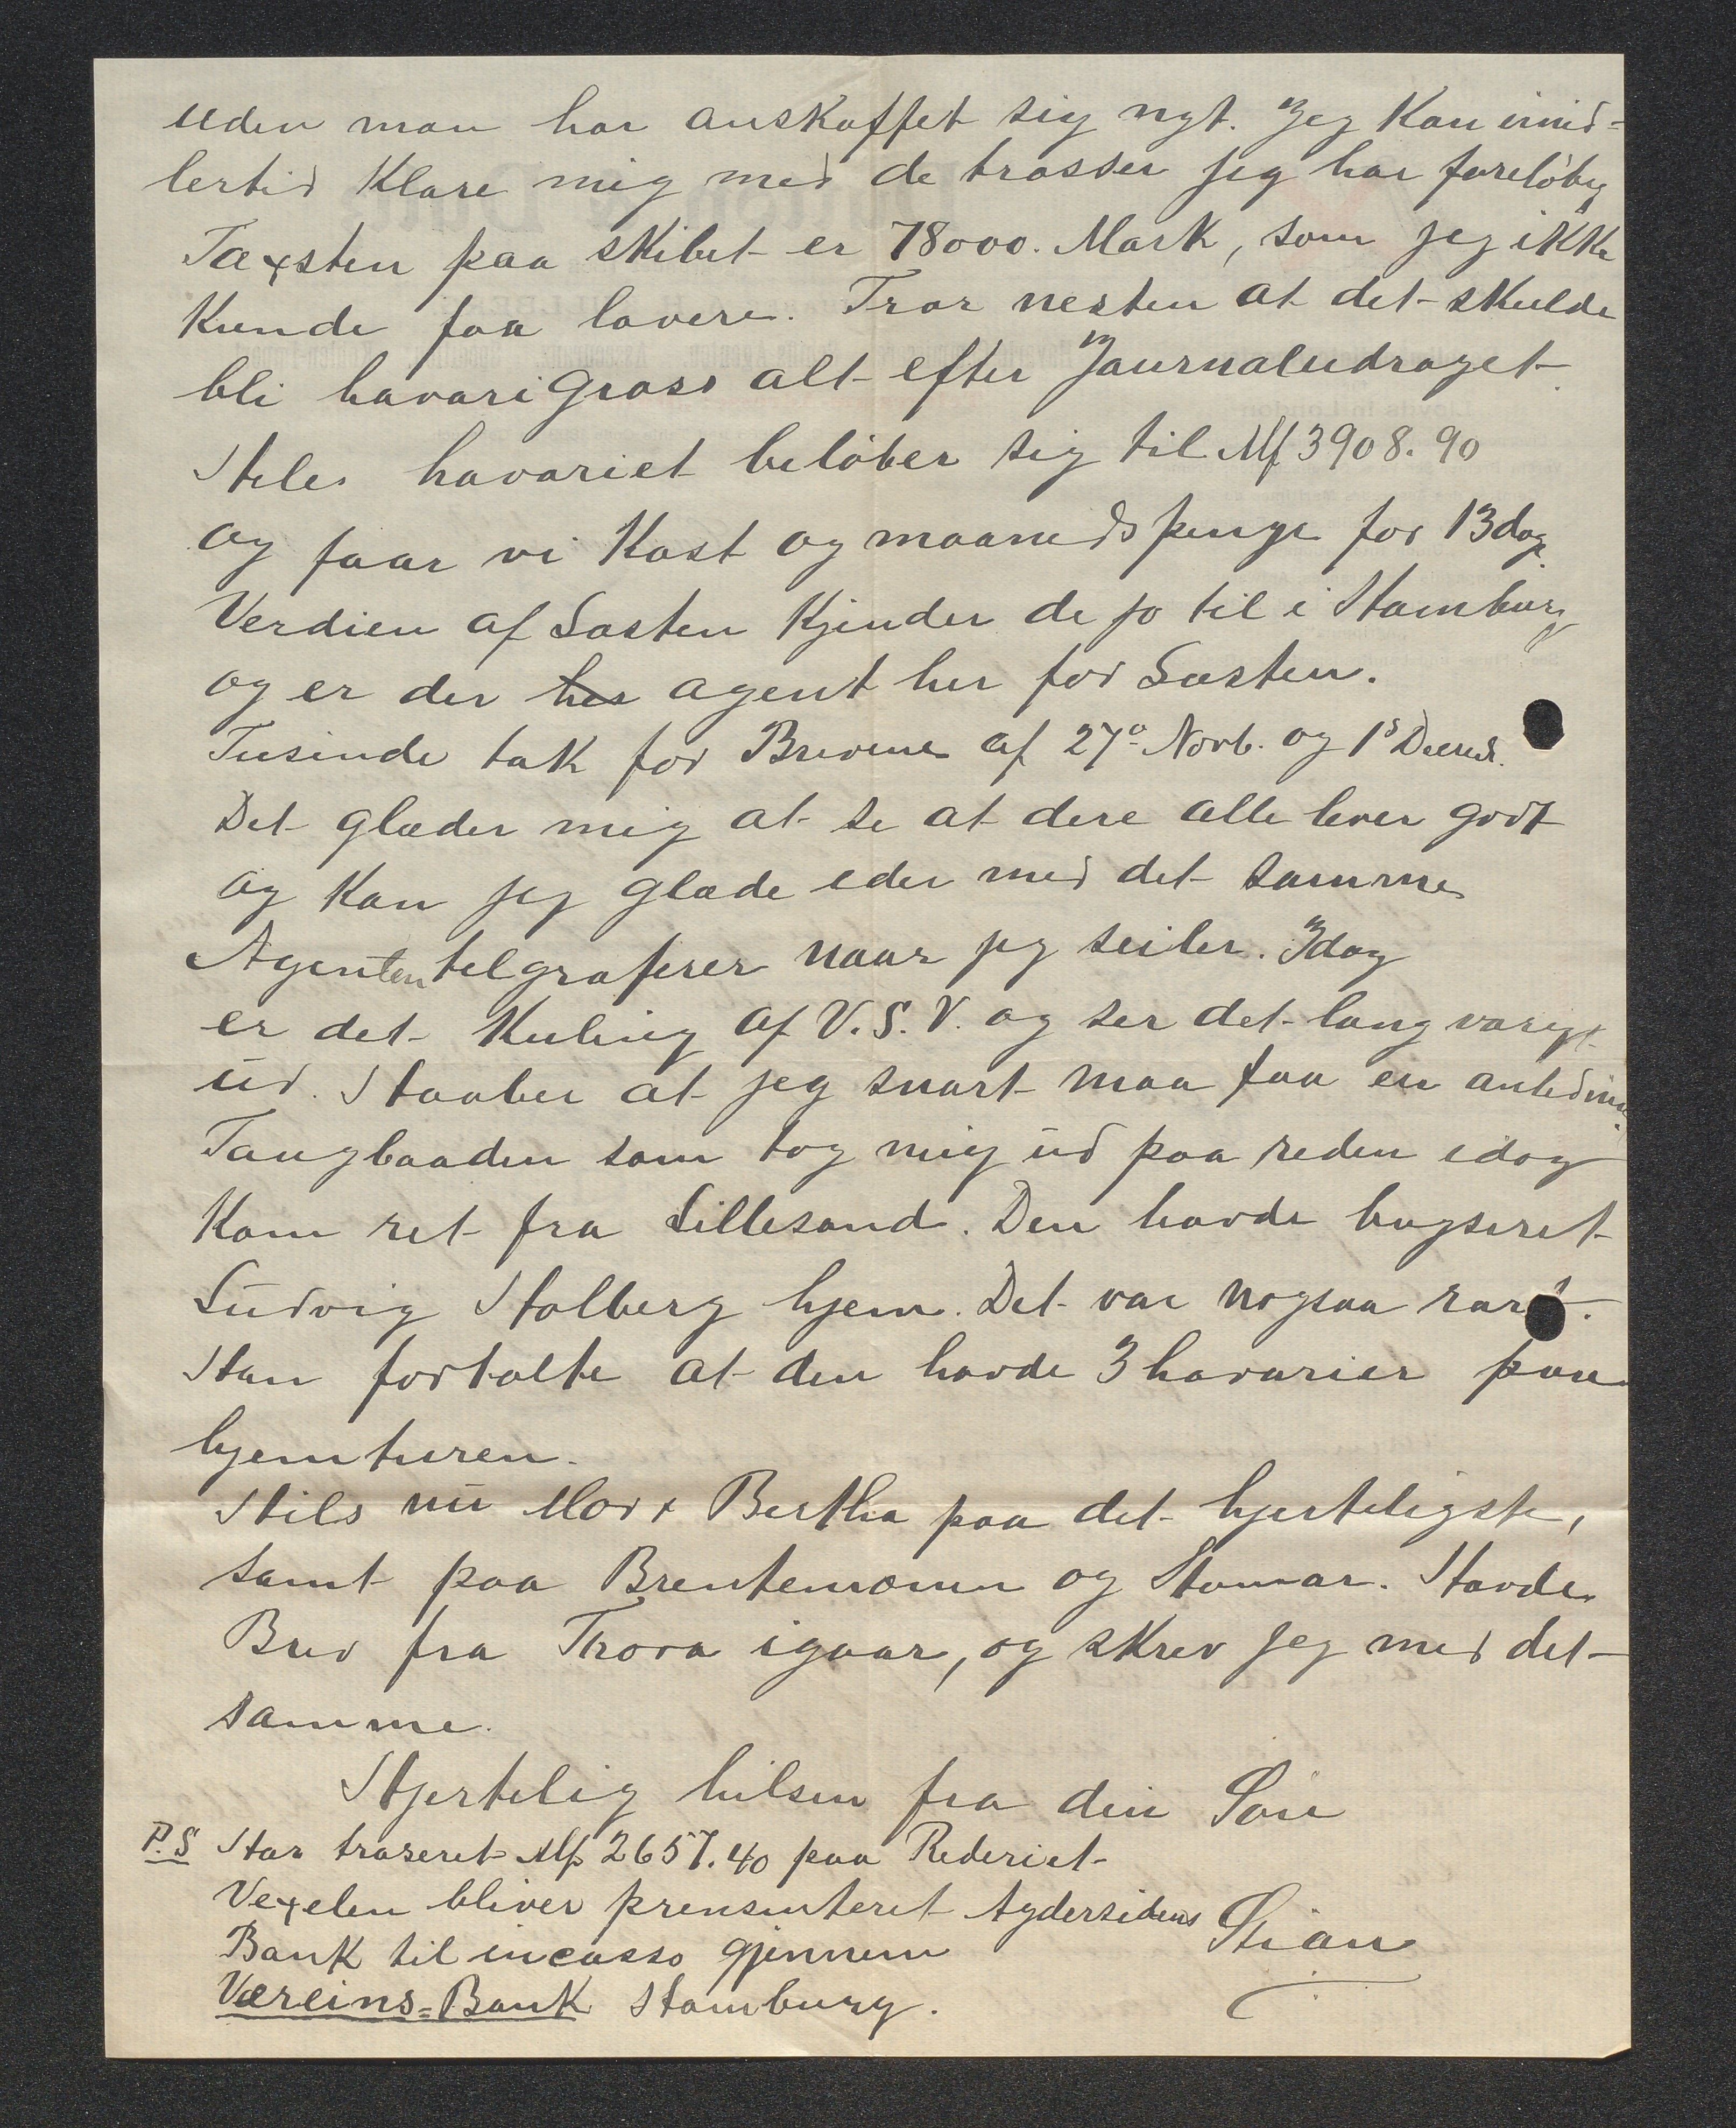 uden man har anskaffet sig nyt. Jeg kan imid=
lertid klare mig med de trosser jeg har foreløbig
Taxsten paa skibet er 78000. Mark, som jeg ikke
kunde faa lavere. Tror nesten at det skulde
bli havari Gross alt efter Journaludraget.
Hele havariet beløber sig til Mf 3908.90
og faar vi Kost og maanedspenge for 13 dage.
Verdien af Lasten kjender de jo til i Hamburg
og er der her agent her for Lasten.
Tusinde tak for Brevene af 27º Novb. og 1s
Det glæder mig at se at dere alle lever godt
og kan jeg glæde eder med det samme
Agenten telgraferer naar jeg seiler. Idag
er det Kuling af V.S.V. og ser det langvarigt
ud. Haaber at jeg snart maa faa en anledning.
Taugbaaden som tog mig ud paa reden idag
kom ret fra Lillesand. Den havde bugseret
Ludvig Holberg hjem. Det var nogsaa rart.
Han fortalte at den havde 3 havarier paa
hjemturen.
Hils nu Mor & Bertha paa det hjerteligste,
samt paa Brentemoen og Homar. Havde
Brev fra Thora igaar, og skrev jeg med det
samme.
Hjertelig hilsen fra din Søn
P.S Har traseret Mf 2657.40 paa Rederiet
Vexelen bliver prensenteret Agdersidens
Stian
Bank til incasso gjennem
Væreins=Bank Hamburg.